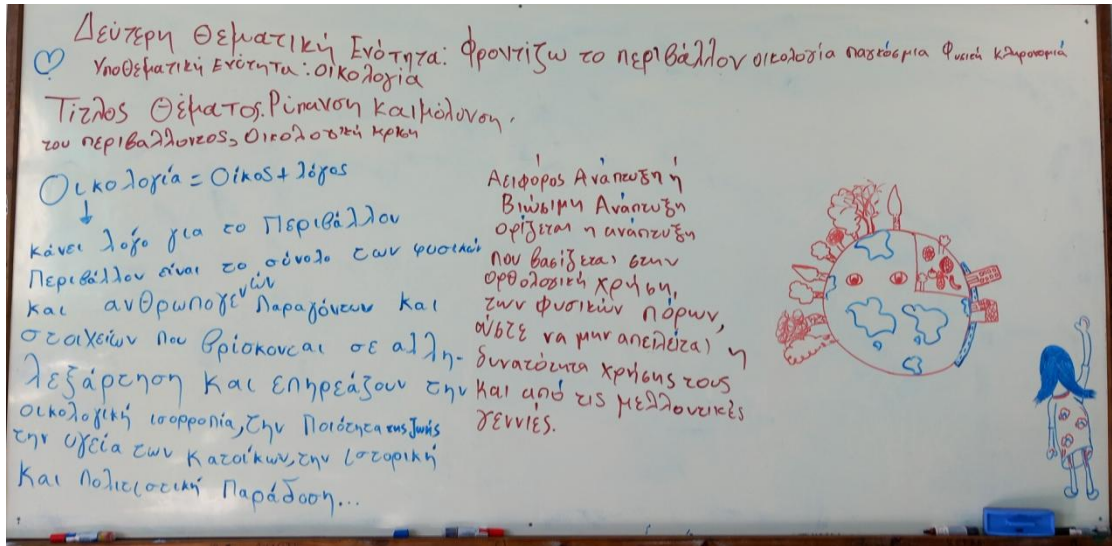 Δεύτερη Θεματική Ενότητα: Φροντίζω το περιβάλλον οικολογία παγκόσμια Φυσική κληρονομιά
Υποθεματική Ενότητα: οικολογία
Τίτλος Θέματος: Ρύπανση και μόλυνση
του περιβάλλοντος, Οικολογική κρίση
Οικολογία = Οίκος + λόγος
κάνει λόγο για το Περιβάλλον
Περιβάλλον είναι το σύνολο των φυσικών
και ανθρωπογενών Παραγόντων και
στοιχείων που βρίσκονται σε αλλη-
λεξάρτηση και επηρεάζουν την
οικολογική ισορροπία, την Ποιότητα της ζωής
την υγεία των κατοίκων, την ιστορική
και πολιτιστική Παράδοση...
Αειφόρος Ανάπτυξη ή
Βιώσιμη Ανάπτυξη
ορίζεται η ανάπτυξη
που βασίζεται στην
ορθολογική χρήση,
των φυσικών πόρων,
ώστε να μην απειλείται η
δυνατότητα χρήσης τους
και από τις μελλοντικές
γεννιές.